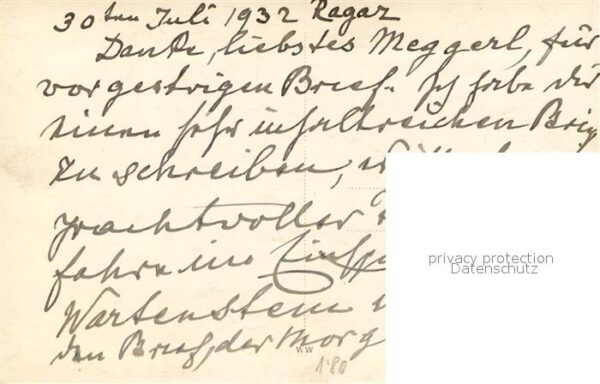 30ten Juli 1932 Ragaz
Danke, liebstes Meggerl, für
vorgestrigen Brief. Ich habe dir
einen sehr inhaltreichen Brief
zu schreiben,
prachtvoller
fahre im
Wartenstein
den Brief, der Morg
privacy protection
Datenschutz